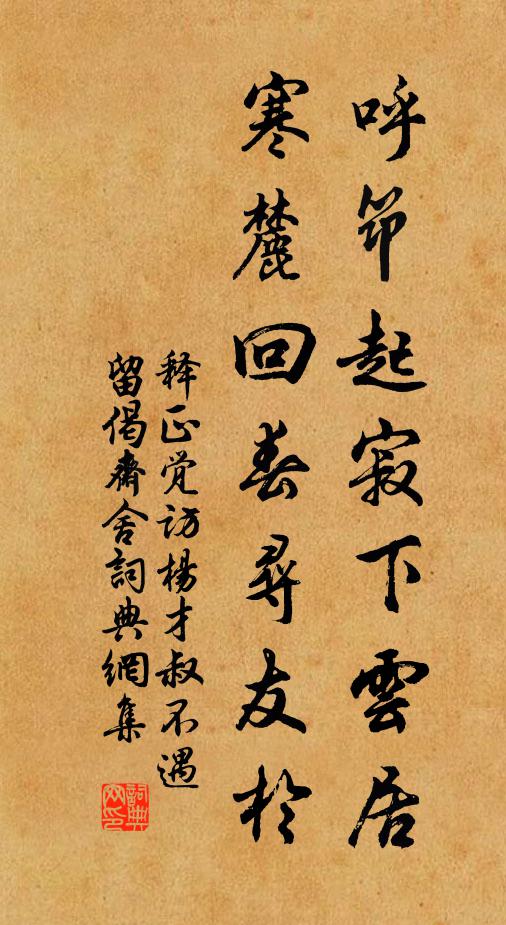 呼筇起寂下雲居
寒麓回春尋友於
释正觉訪楊才叔不遇
留偈齋舍詞典網集
詞典網印